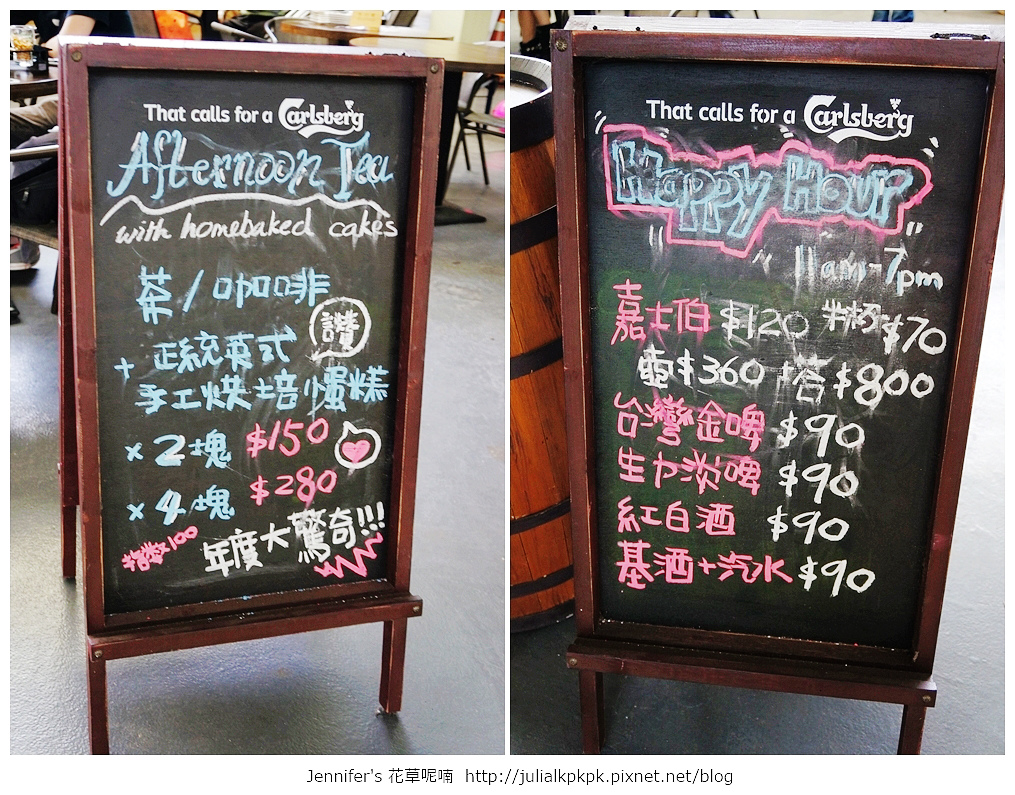 That calls for a Carlsberg
Afternoon Tea
with homebaked cakes
茶/咖啡
讚
+ 正統英式
手工烘培蛋糕
x 2 塊 $150
x 4 塊 $280
年度大驚奇!!!
That calls for a Carlsberg
Happy Hour
11am-7pm
嘉士伯 $120 半杯 $70
壺 $360 塔 $800
台灣金啤 $90
生力淡啤 $90
紅白酒 $90
基酒+汽水 $90
Jennifer's 花草呢喃 http://julialkpkpk.pixnet.net/blog